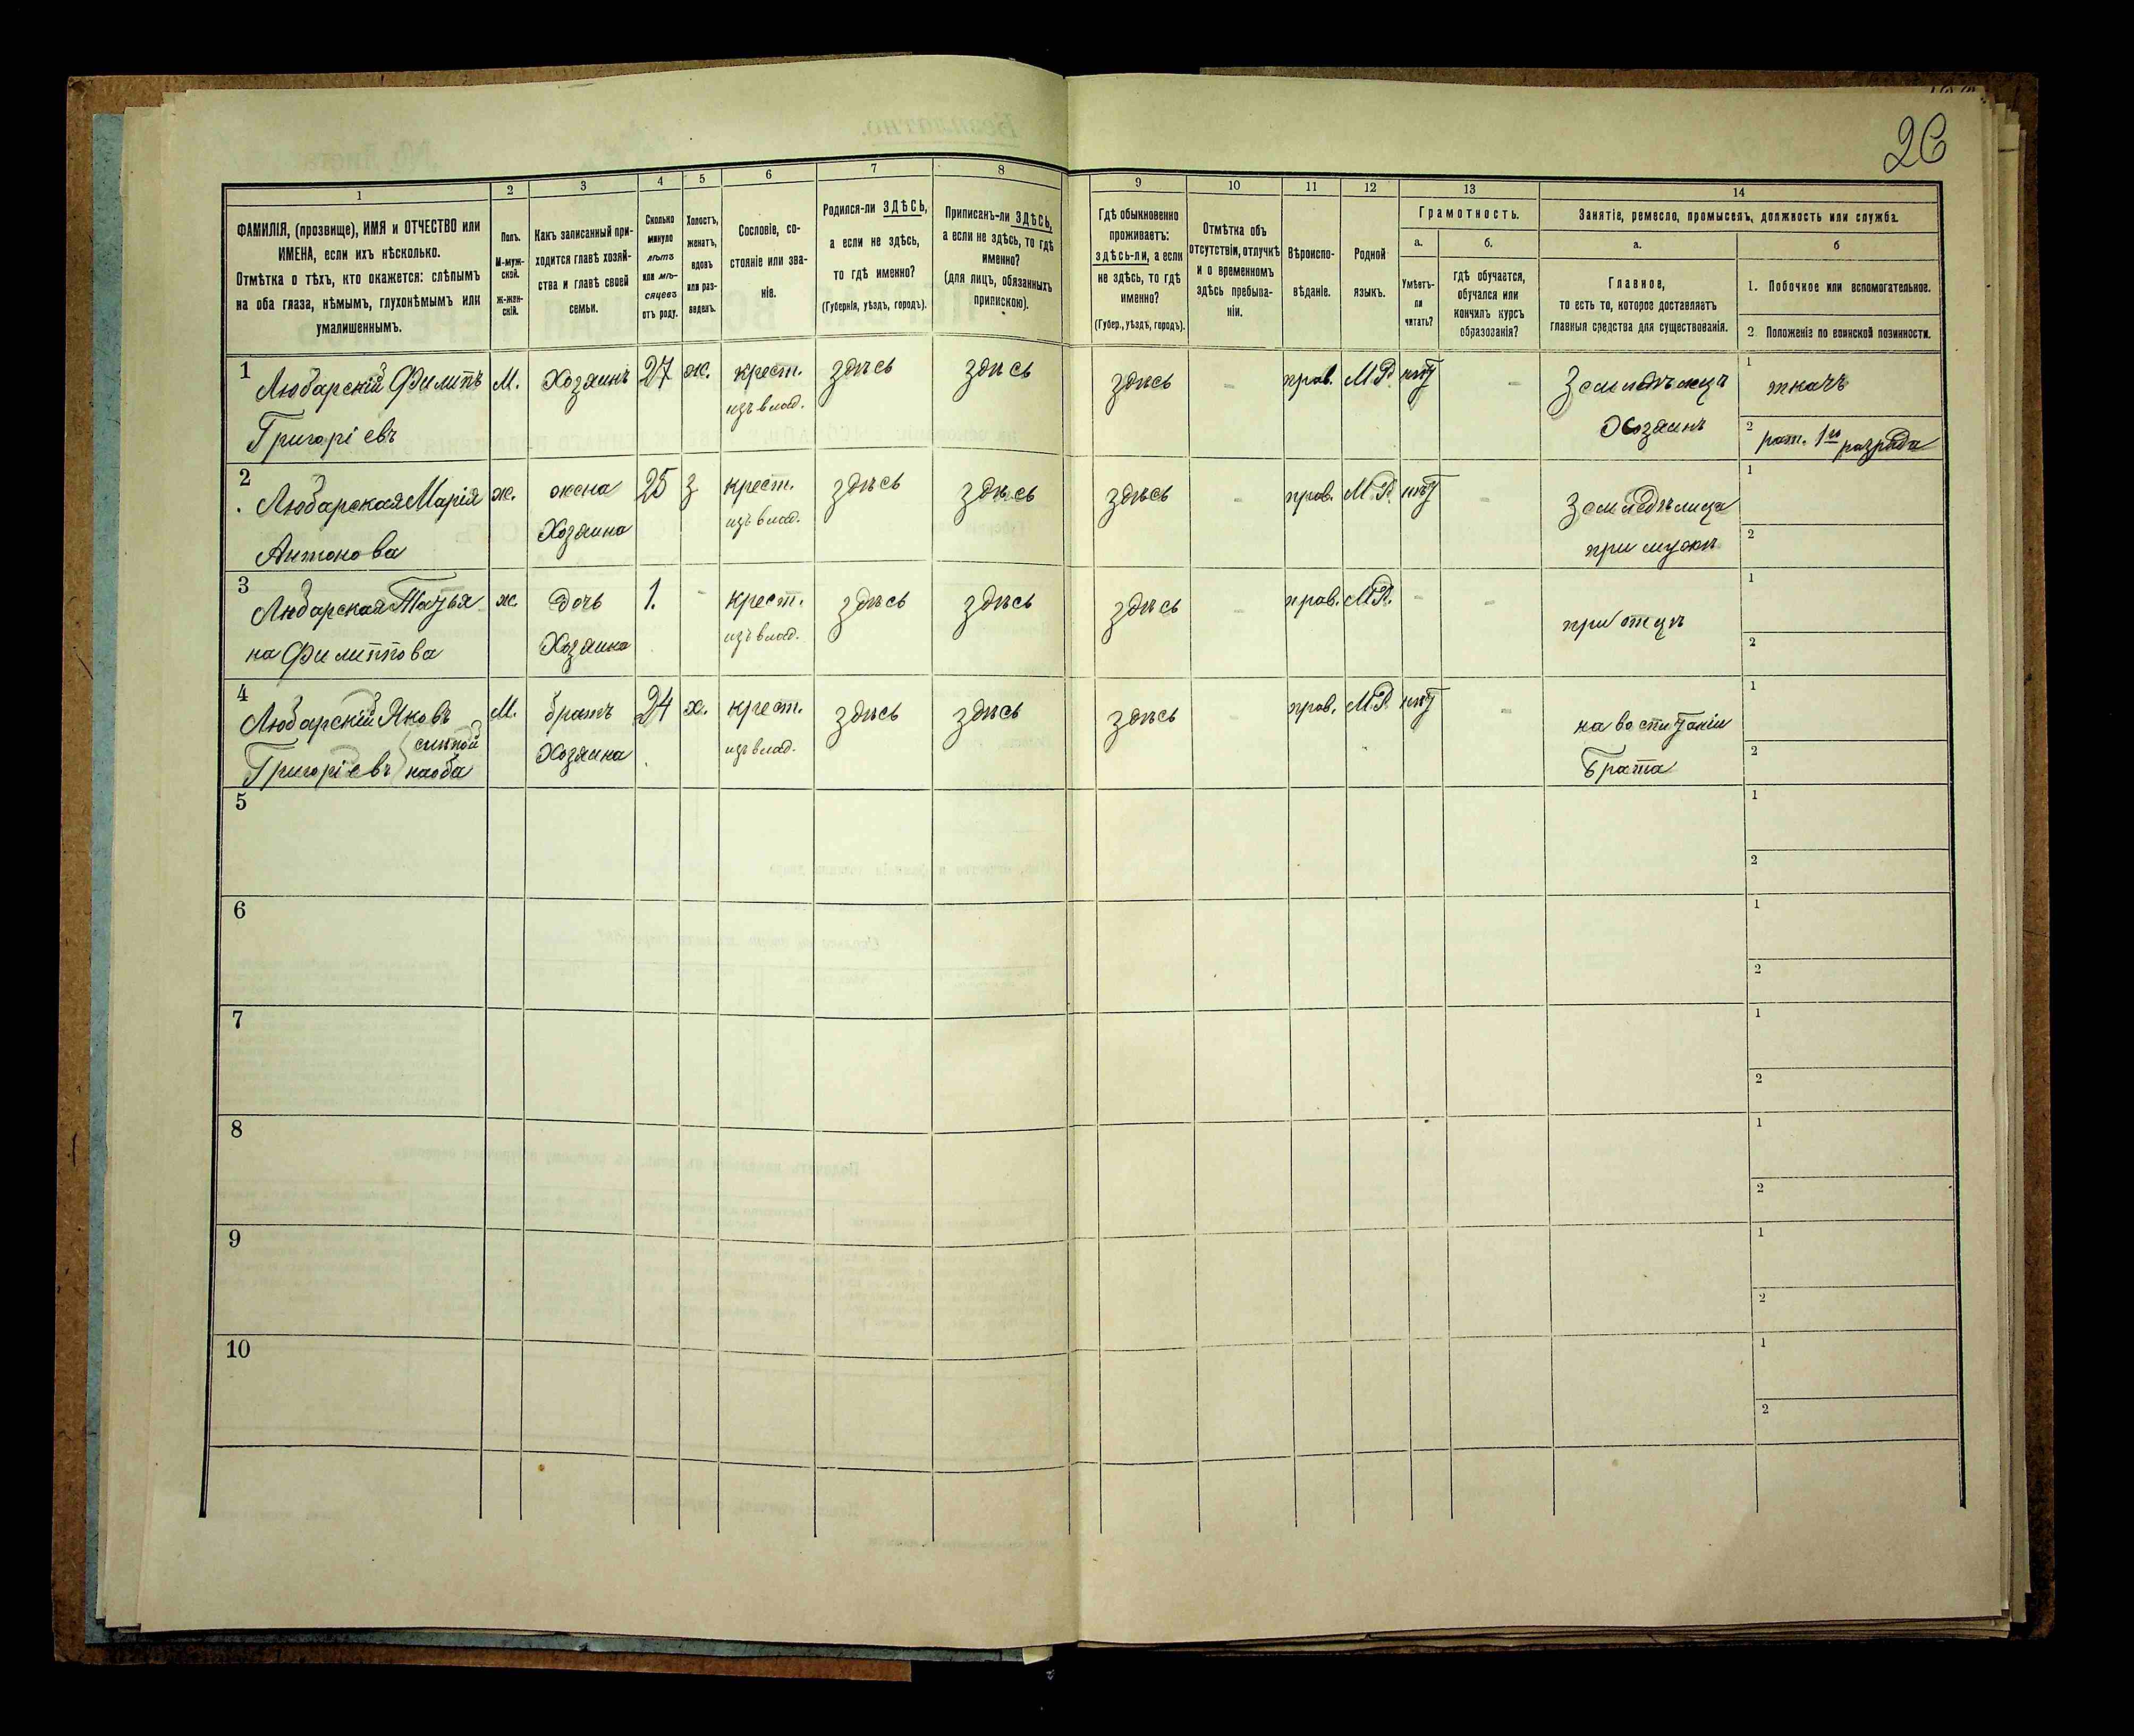 26
1
2
3
4
5
6
7
8
9
10
11
12
13
14
ФАМИЛІЯ, (прозвище), ИМЯ и ОТЧЕСТВО или
ИМЕНА, если ихъ нѣсколько.
Отмѣтка о тѣхъ, кто окажется: слѣпымъ
на оба глаза, нѣмымъ, глухонѣмымъ или
умалишеннымъ.
Полъ.
М-муж-
ской.
Ж-жен-
скій.
Какъ записанный при-
ходится главѣ хозяй-
ства и главѣ своей
семьи.
Сколько
минуло
лѣтъ
или мѣ-
сяцевъ
отъ роду.
Холостъ,
женатъ,
вдовъ
или раз-
веденъ.
Сословіе, со-
стояніе или зва-
ніе.
Родился-ли ЗДѢСЬ,
а если не здѣсь,
то гдѣ именно?
(Губернія, уѣздъ, городъ).
Приписанъ-ли ЗДѢСЬ,
а если не здѣсь, то гдѣ
именно?
(для лицъ, обязанныхъ
припискою).
Гдѣ обыкновенно
проживаетъ:
здѣсь-ли, а если
не здѣсь, то гдѣ
именно?
(Губер., уѣздъ, городъ).
Отмѣтка объ
отсутствіи, отлучкѣ
и о временномъ
здѣсь пребыва-
ніи.
Вѣроиспо-
вѣданіе.
Родной
языкъ.
Грамотность.
а.
б.
Умѣетъ-
ли
читать?
гдѣ обучается,
обучался или
кончилъ курсъ
образованія?
Занятіе, ремесло, промыселъ, должность или служба.
а.
б
Главное,
то есть то, которое доставляетъ
главныя средства для существованія.
1. Побочное или вспомогательное.
2. Положеніе по воинской повинности.
1 Любарскій Филипъ М. Хозяинъ 27 ж. крест. здѣсь здѣсь здѣсь - прав. М.Р. нѣт - Земледѣлецъ 1 ткачъ
Григоріевъ изъ влад. Хозяинъ 2 рат. 1го разряда
2 Любарская Марія ж. жена 25 з. крест. здѣсь здѣсь здѣсь - прав. М.Р. нѣт - Земледѣлица 1
Антонова Хозяина изъ влад. при мужѣ 2
3 Любарская Татья ж. дочь 1. - крест. здѣсь здѣсь здѣсь - прав. М.Р. - - при отцѣ 1
на Филиппова Хозяина изъ влад. 2
4 Любарскій Яковъ М. братъ 24 х. крест. здѣсь здѣсь здѣсь - прав. М.Р. нѣт - на воспитаніи 1
слѣпой
Григоріевъ на оба Хозяина изъ влад. брата 2
5 1
2
6 1
2
7 1
2
8 1
2
9 1
2
10 1
2